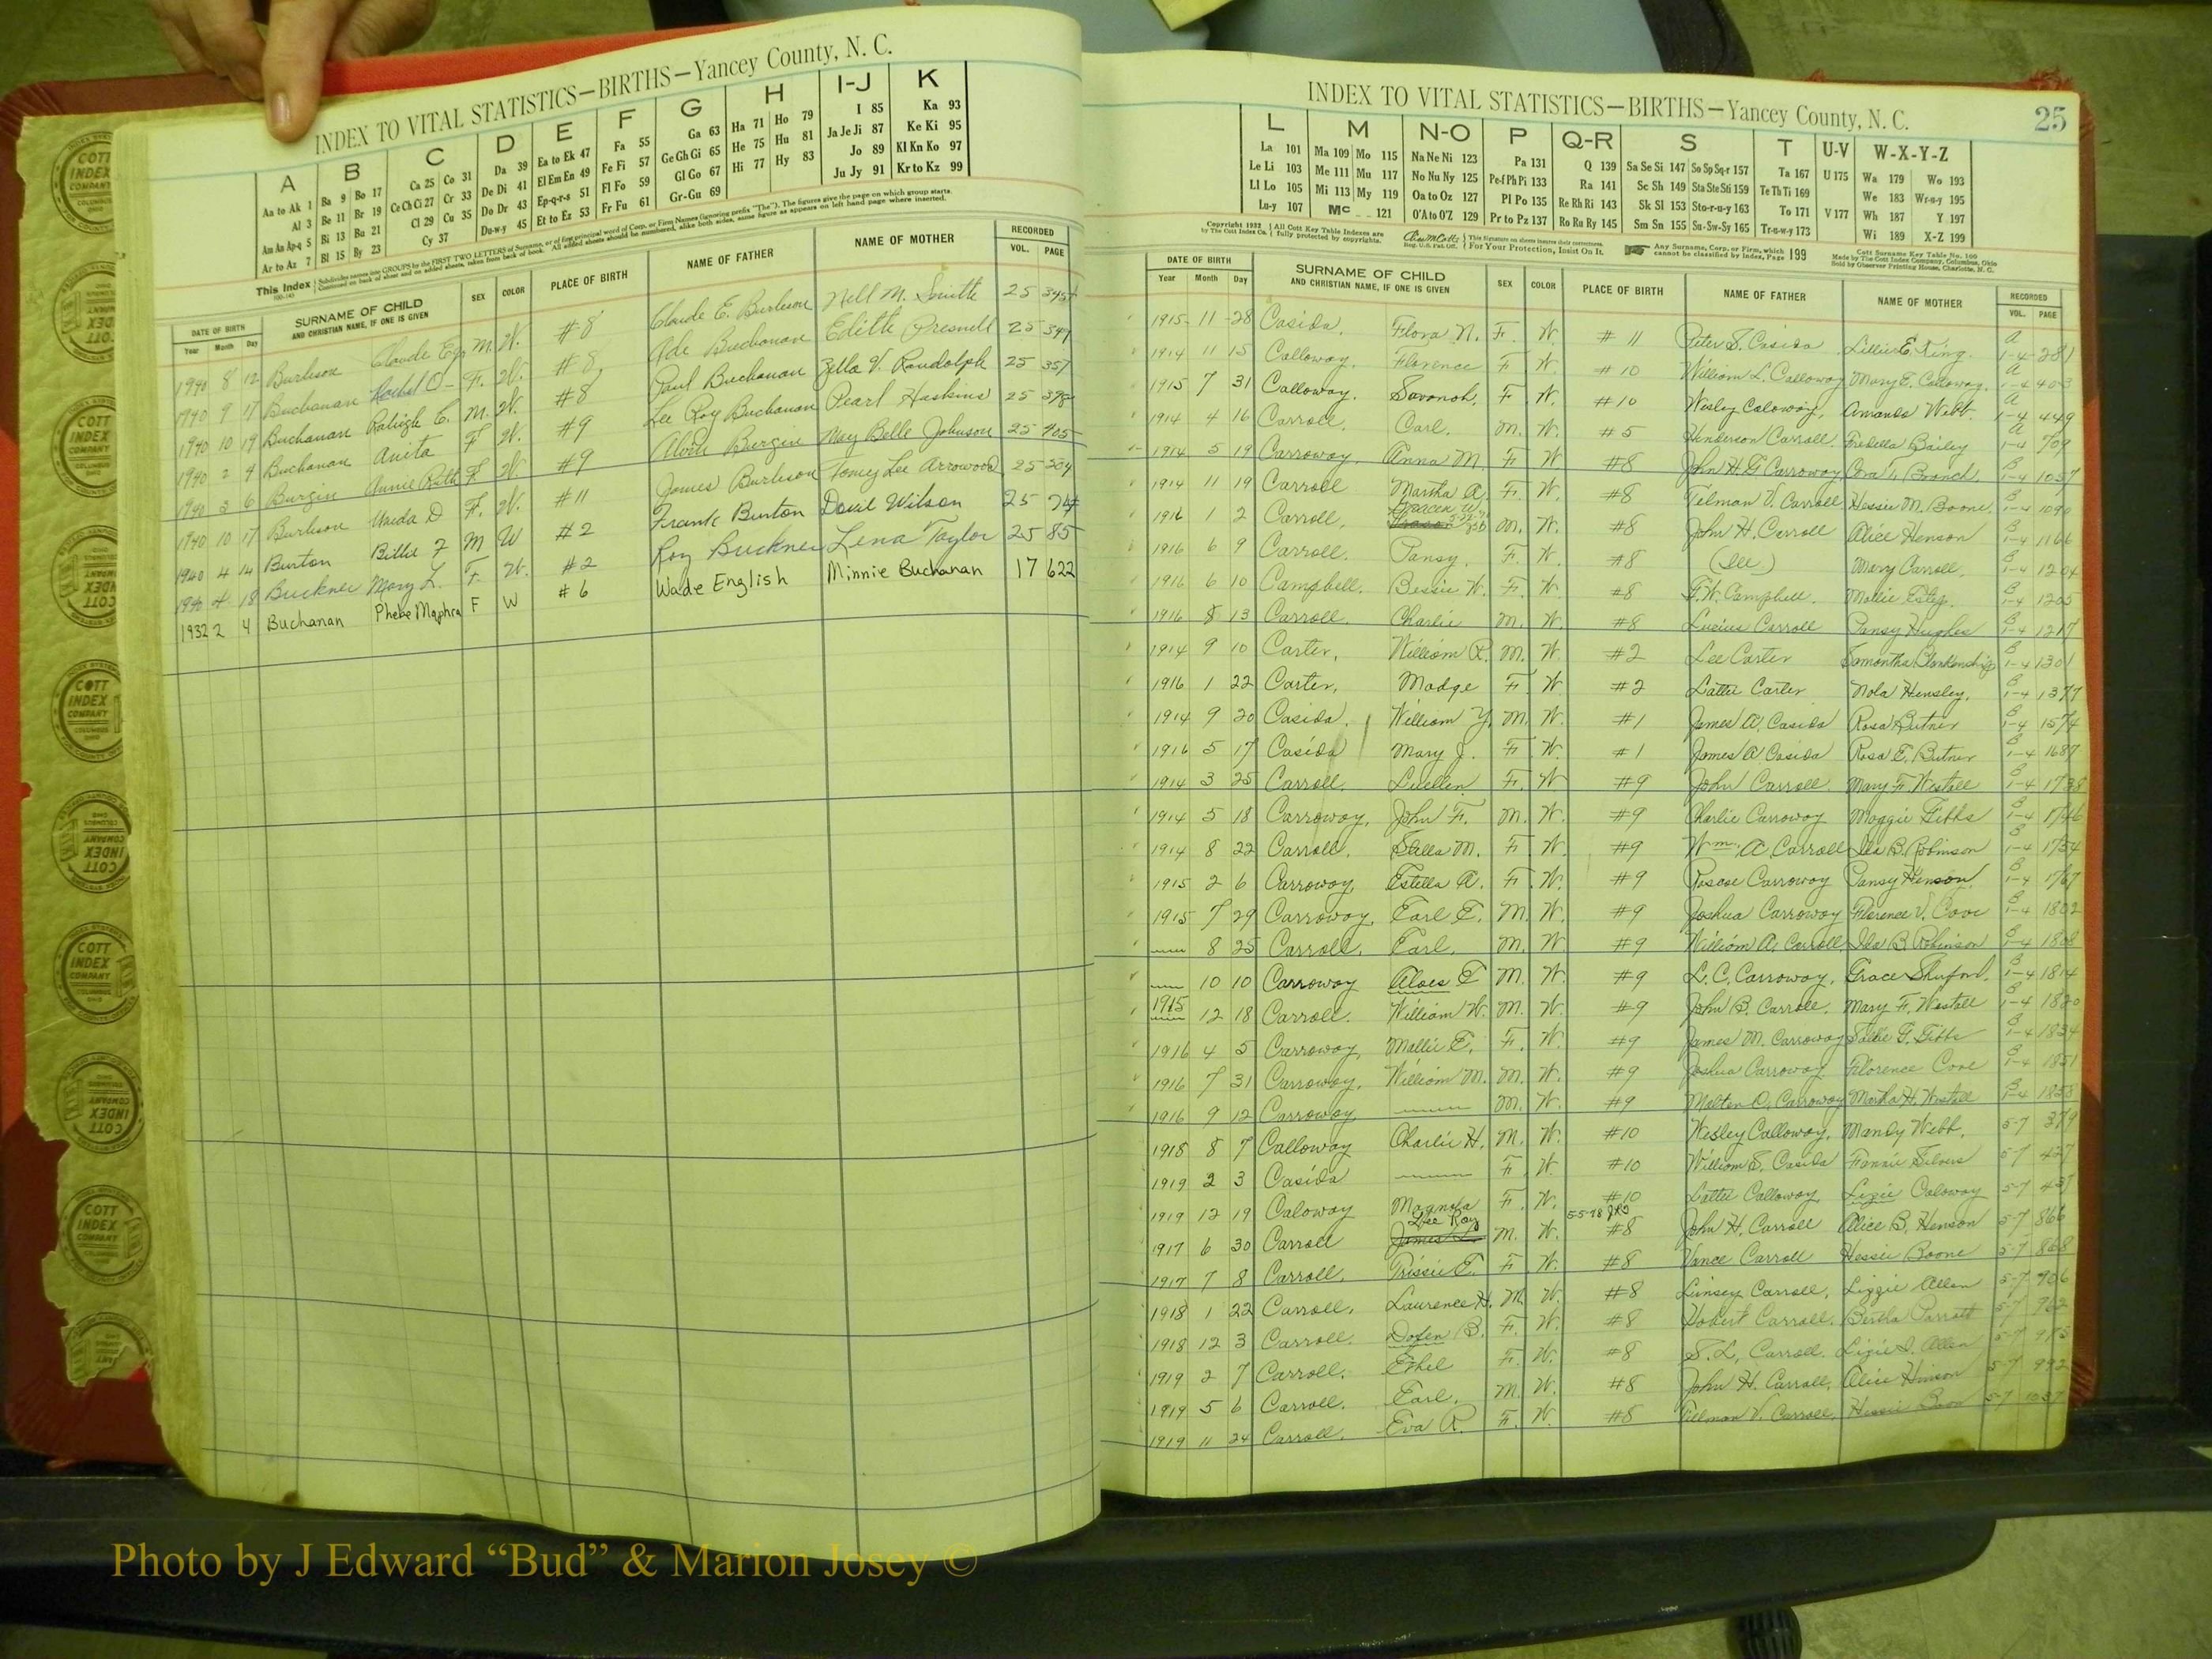 INDEX TO VITAL STATISTICS—BIRTHS—Yancey County, N. C.
A B C D E F G H I-J K
Aa to Ak 1 Ba 9 Bo 17 Ca 25 Co 31 Da 39 Ea to Ek 47 Fa 55 Ga 63 Ha 71 Ho 79 I 85 Ka 93
Al 3 Be 11 Br 19 Ce Ch Ci 27 Cr 33 De Di 41 El Em En 49 Fe Fi 57 Ge Gh Gi 65 He 75 Hu 81 Ja Je Ji 87 Ke Ki 95
Am An Ap-q 5 Bi 13 Bu 21 Cl 29 Cu 35 Do Dr 43 Ep-q-r-s 51 Fl Fo 59 Gl Go 67 Hi 77 Hy 83 Jo 89 Kl Kn Ko 97
Ar to Az 7 Bl 15 By 23 Cy 37 Du-w-y 45 Et to Ez 53 Fr Fu 61 Gr-Gu 69 Ju Jy 91 Kr to Kz 99
This Index
DATE OF BIRTH SURNAME OF CHILD SEX COLOR PLACE OF BIRTH NAME OF FATHER NAME OF MOTHER RECORDED
Year Month Day AND CHRISTIAN NAME, IF ONE IS GIVEN VOL. PAGE
1940 8 12 Burleson Claude E Jr M. W. #8 Claude E. Burleson Nell M. Smith 25
1940 9 17 Buchanan F. W. #8 Ade Buchanan Edith Presnell 25 347
1940 10 19 Buchanan Raligh C. M. W. #8 Paul Buchanan Zella V. Randolph 25 357
1940 2 9 Buchanan Anita F W. #9 Lee Roy Buchanan Pearl Haskins 25
1940 3 6 Burgin Annie Ruth F W #9 Alvin Burgin May Belle Johnson 25 405
1940 10 17 Burleson Waida D F. W. #11 James Burleson Tomey Lee Arrowood 25 204
1940 4 14 Burton Billie F M W #2 Frank Burton Wilson 25
1940 4 18 Buckner Mary L. F. W. #2 Roy Buckner Lena Taylor 25 85
1932 2 4 Buchanan Phebe Maphra F W #6 Wade English Minnie Buchanan 17 622
INDEX TO VITAL STATISTICS—BIRTHS—Yancey County, N. C. 25
L M N-O P Q-R S T U-V W-X-Y-Z
La 101 Ma 109 Mo 115 Na Ne Ni 123 Pa 131 Q 139 Sa Se Si 147 So Sp Sq-r 157 Ta 167 U 175 Wa 179 Wo 193
Le Li 103 Me 111 Mu 117 No Nu Ny 125 Pe-f Ph Pi 133 Ra 141 Sc Sh 149 Sta Ste Sti 159 Te Th Ti 169 We 183 Wr-u-y 195
Ll Lo 105 Mi 113 My 119 Oa to Oz 127 Pl Po 135 Re Rh Ri 143 Sk Sl 153 Sto-r-u-y 163 To 171 V 177 Wh 187 Y 197
Lu-y 107 Mc 121 O'A to O'Z 129 Pr to Pz 137 Ro Ru Ry 145 Sm Sn 155 Su-Sw-Sy 165 Tr-u-w-y 173 Wi 189 X-Z 199
Copyright 1932 by The Cott Index Co. All Cott Key Table Indexes are fully protected by copyrights. This Signature on sheets insures their correctness. For Your Protection, Insist On It. Any Surname, Corp. or Firm, which cannot be classified by Index, Page 199 Cott Surname Key Table No. 100 Made by The Cott Index Company, Columbus, Ohio Sold by Observer Printing House, Charlotte, N. C.
DATE OF BIRTH SURNAME OF CHILD SEX COLOR PLACE OF BIRTH NAME OF FATHER NAME OF MOTHER RECORDED
Year Month Day AND CHRISTIAN NAME, IF ONE IS GIVEN VOL. PAGE
1915 11 28 Casida, Flora N. F. W. #11 Peter S. Casida Lillie E. King. A 1-4 281
1914 11 15 Calloway, Florence F W. #10 William L. Calloway Mary E. Calloway. A 1-4 403
1915 7 31 Calloway. Savonoh. F. W. #10 Wesley Caloway, Amanda Webb. A 1-4 449
1914 4 16 Carroll, Carl. M. W. #5 Henderson Carroll Fredella Bailey A 1-4 709
1914 5 19 Carroway, Anna M. F W #8 John H. G Carroway Branch. B 1-4 1057
1914 11 19 Carroll Martha A. F. W. #8 Tilman V. Carroll Hessie M. Boone. B 1-4 1090
1916 1 2 Carroll, M. W. #8 John H. Carroll Alice Henson B 1-4 1166
1916 6 9 Carroll. Pansy. F. W. #8 Mary Carroll. B 1-4 1204
1916 6 10 Campbell. Bessie W. F. W. #8 G.W. Campbell. Mollie Estep. B 1-4 1205
1916 8 13 Carroll. Charlie M. W. #8 Lucius Carroll Pansy Hughes B 1-4 1217
1914 9 10 Carter, William R. M. W. #2 Lee Carter Samantha Blankenship B 1-4 1301
1916 1 22 Carter, Madge F W #2 Lattie Carter Nola Hensley. B 1-4 1377
1914 9 20 Casida. William Y. M. W. #1 James A. Casida Rosa Butner B 1-4 1574
1916 5 17 Casida Mary J. F. W. #1 James A Casida Rosa E. Butner B 1-4 1687
1914 3 25 Carroll. Luellen F. W #9 John Carroll. Mary F. Westall B 1-4 1738
1914 5 18 Carroway, John F. M. W. #9 Charlie Carroway Maggie Gibbs B 1-4 1746
1914 8 22 Carroll. Stella M. F W. #9 Wm. A. Carroll Ida B. Robinson B 1-4 1754
1915 2 6 Carroway, Estella A. F. W. #9 Roscoe Carroway Pansy Henson. B 1-4 1767
1915 7 29 Carroway, Earl E. M. W. #9 Joshua Carroway Florence V. Cove B 1-4 1802
8 25 Carroll. Earl. M. W #9 William A. Carroll Ida B Robinson B 1-4 1808
10 10 Carroway Aloes E M. W. #9 L. C. Carroway. Grace Shuford. B 1-4 1814
1915 12 18 Carroll. William W. M. W. #9 John B. Carroll. Mary F. Westall B 1-4 1820
1916 4 5 Carroway, Mallie E. F. W. #9 James M. Carroway Sallie G. Gibbs B 1-4 1834
1916 7 31 Carroway. William M. M. W. #9 Joshua Carroway Florence Cove B 1-4 1851
1916 9 12 Carroway M. W. #9 Molten O. Carroway Martha H. Westall B 1-4 1858
1918 8 7 Calloway Charlie H. M. W. #10 Wesley Calloway. Mandy Webb. 5-7 379
1919 2 3 Casida F. W. #10 William S. Casida Fannie Silvers 5-7 427
1919 12 19 Caloway Magnolia F. W. #10 Lattie Calloway, Lizzie Caloway 5-7 457
1917 6 30 Carroll Lee Roy James L. M. W. 5-5-78 #8 John H. Carroll Alice B. Henson 5-7 866
1917 7 8 Carroll. Trissie E. F W. #8 Vance Carroll Hessie Boone 5-7 868
1918 1 22 Carroll. Laurence H. M. W. #8 Linsey Carroll. Lizzie Allen 5-7 906
1918 12 3 Carroll. B. F. W. #8 Hobert Carroll. Bertha Parrott 5-7 962
1919 2 7 Carroll. Ethel F. W. #8 S. L. Carroll. Lizzie I. Allen 5-7 975
1919 5 6 Carroll. Earl. M. W. #8 John H. Carroll. Alice Hinson 5-7 992
1919 11 24 Carroll. Eva R. F. W. #8 Tilman V. Carroll. Hessie Boon 5-7 1037
COTT INDEX COMPANY COLUMBUS OHIO
Photo by J Edward “Bud” & Marion Josey ©